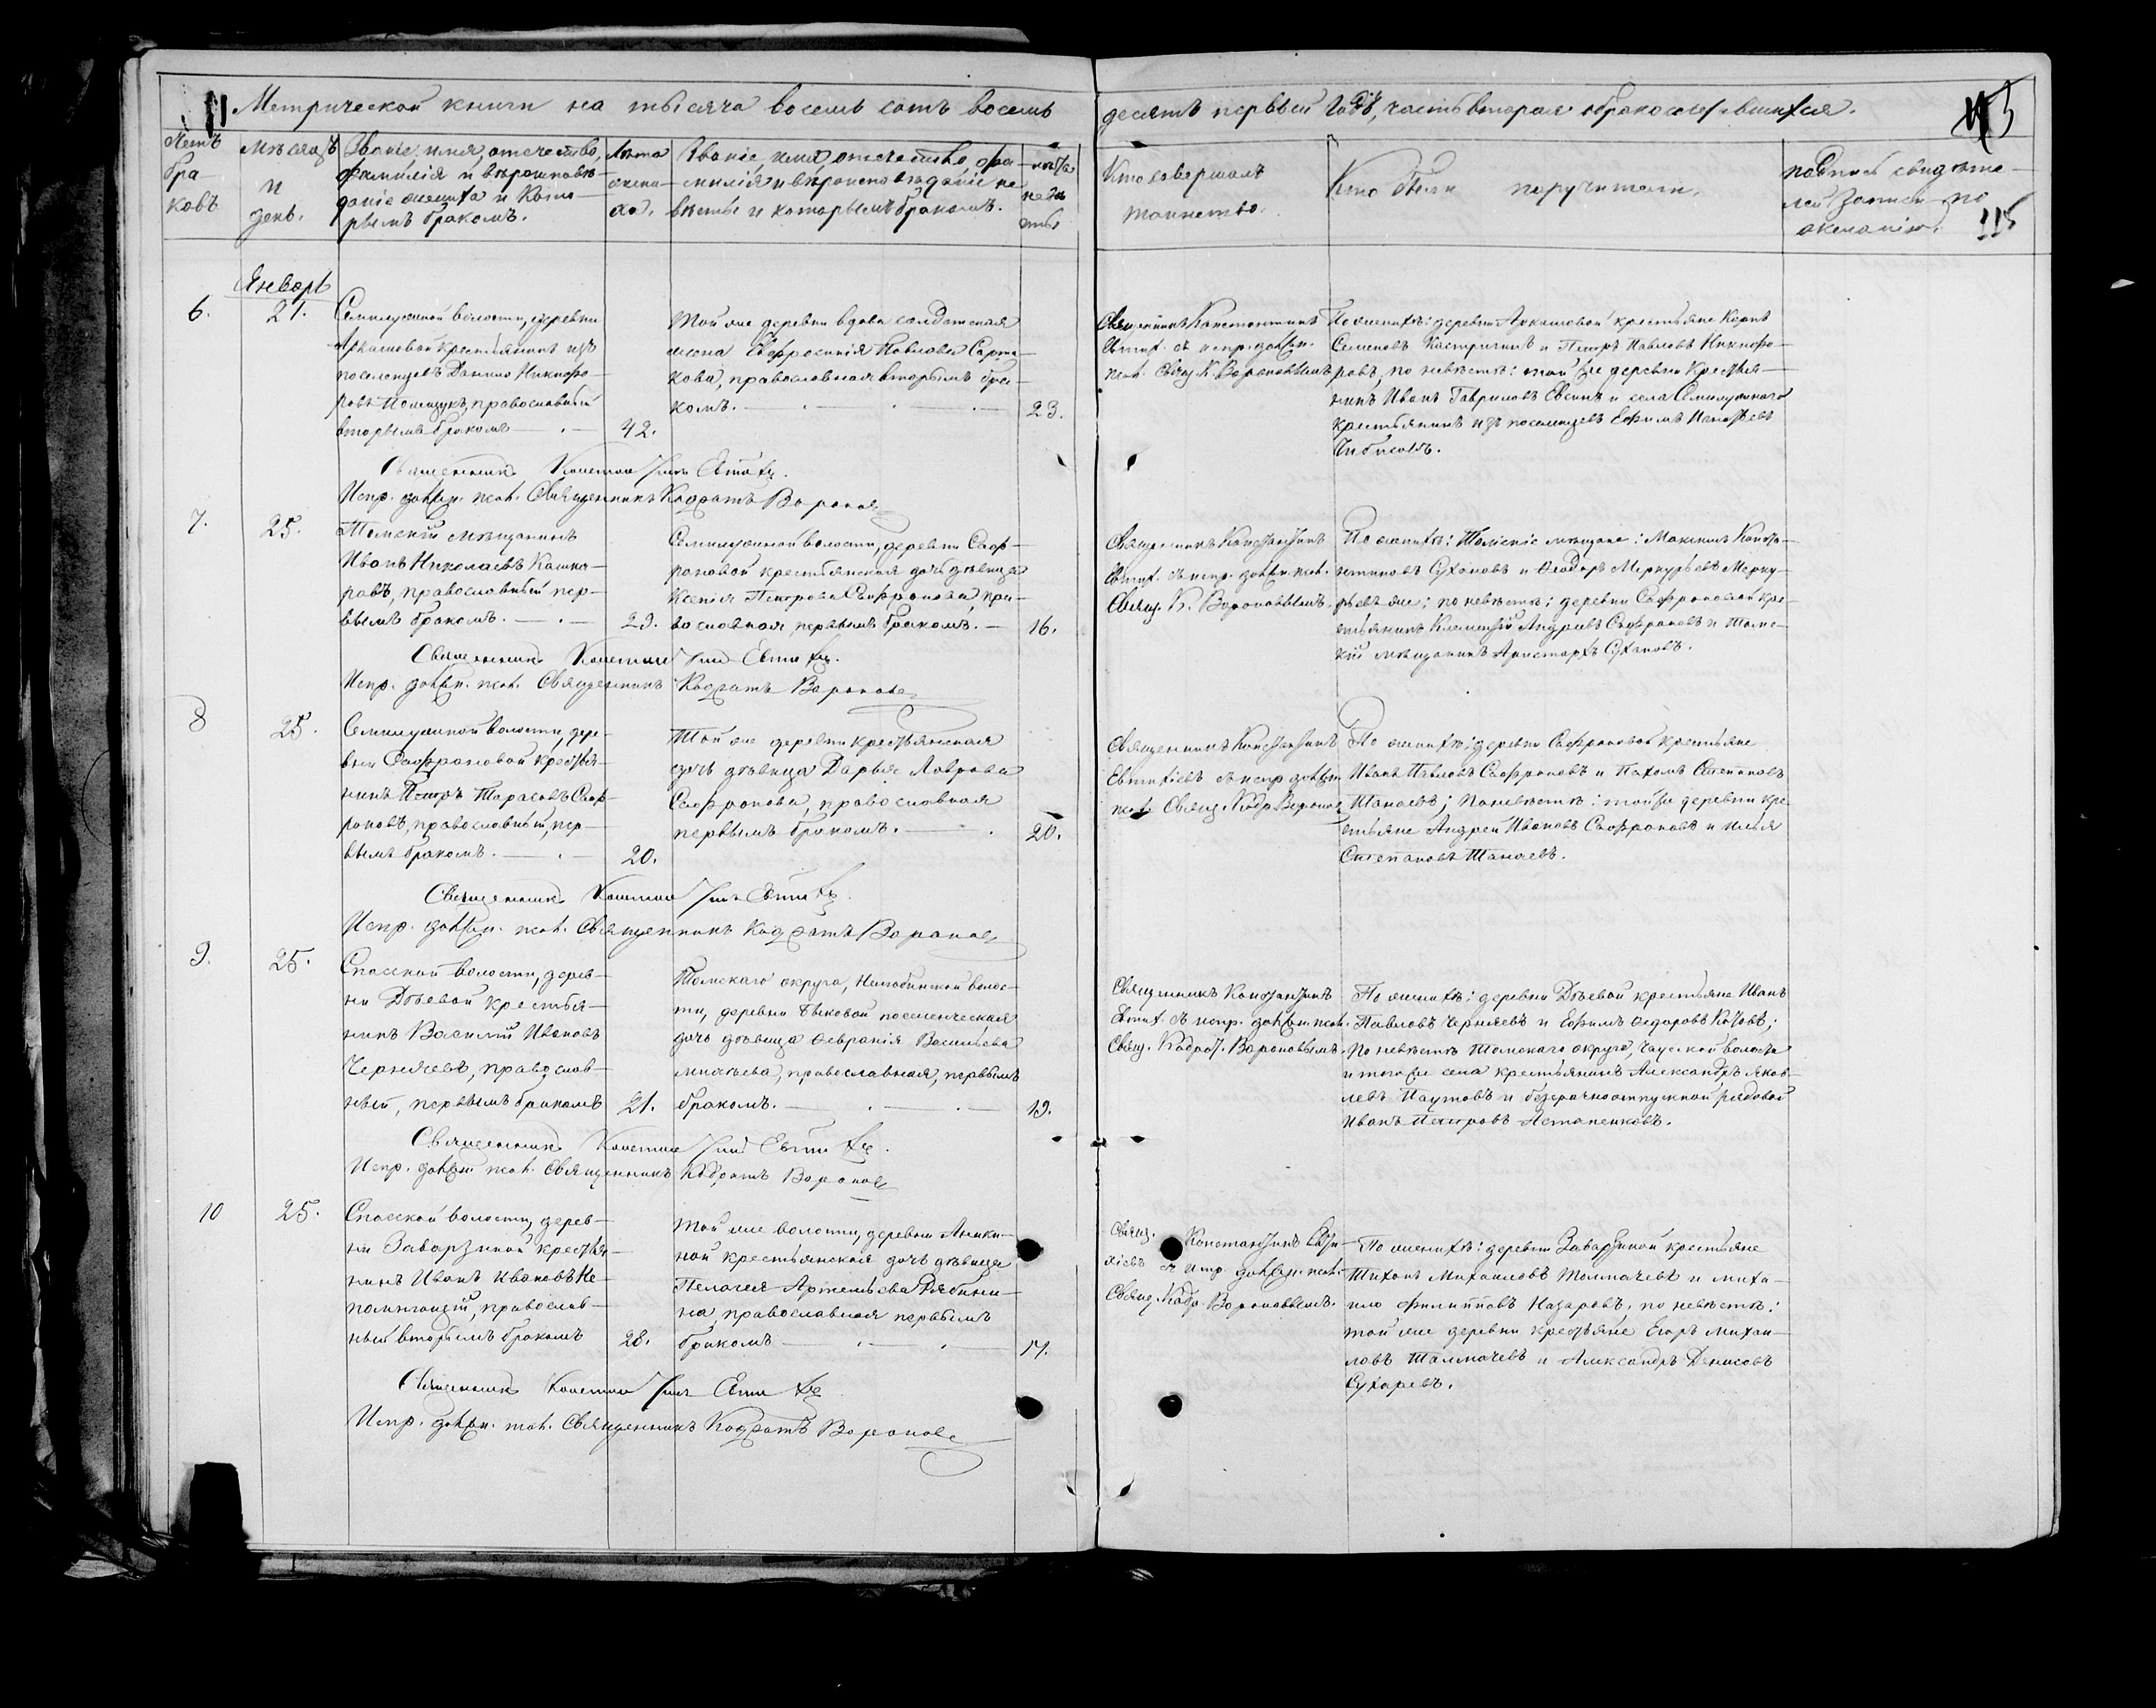 Метрической книги на тысяча восемь сотъ восемь
десятъ первый годъ, часть вторая о бракосочетавшихся.
115
Счетъ браковъ
Мѣсяцъ и день.
Званіе, имя, отечество,
фамилія и вѣроисповѣ-
даніе жениха и кото-
рымъ бракомъ.
Лѣта
жени-
ха.
Званіе, имя, отечество, фа-
милія и вѣроисповѣданіе не
вѣсты и которымъ бракомъ.
лѣта
невѣ
сты
Кто совершалъ
таинство.
Кто были поручители.
подпись свидѣте-
лей записи по
желанію.
115
Январь
6.
21.
Семилужной волости, деревни
крестьянинъ изъ
поселенцевъ Данило Никифо-
ровъ православный
вторымъ бракомъ
42.
Той же деревни вдова солдатская
жена Евфросинія Павлова
православная вторымъ бра-
комъ.
23.
Священникъ Константинъ
Евтих. съ испр. должн.
псал. Свящ. К. Вороновымъ
По женихѣ: деревни Аркашовой крестьяне Карпъ
Семеновъ и Петръ Павловъ Никифо-
ровъ, по невѣстѣ: той же деревни крестья-
нинъ Иванъ Гавриловъ Евсинъ и села Семилужнаго
крестьянинъ изъ поселенцевъ Ефимъ
Чибисовъ.
Священникъ Константинъ Евтих.
Испр. должн. псал. Священникъ Кодратъ Вороновъ
7.
25.
Томскій мѣщанинъ
Иванъ Николаевъ
православный пер-
вымъ бракомъ.
29.
Семилужной волости, деревни Саф-
роновой крестьянская дочь дѣвица
Ксенія Петрова Сафронова пра-
вославная, первымъ бракомъ.
16.
Священникъ Константинъ
Евтих. съ испр. должн. псал.
Свящ. К. Вороновымъ.
По женихѣ: Томскіе мѣщане: Максимъ Конста-
нтиновъ Сухановъ и Ѳеодоръ Меркурьевъ Мерку-
рьевъ же; по невѣстѣ: деревни Сафроновой кре-
стьянинъ Климентій Андреевъ Сафроновъ и Томс-
кій мѣщанинъ Аристархъ Сухановъ.
Священникъ Константинъ Евтих.
Испр. должн. псал. Священникъ Кодратъ Вороновъ
8
25.
Семилужной волости, дере-
вни Сафроновой крестья-
нинъ Петръ Тарасовъ Саф-
роновъ, православный, пер-
вымъ бракомъ.
20.
Той же деревни крестьянская
дочь дѣвица Дарья Лаврова
Сафронова, православная
первымъ бракомъ.
20.
Священникъ Константинъ
Евтихіевъ съ испр. должн
псал. Свящ. Кодр. Воронов.
По женихѣ: деревни Сафроновой крестьяне
Иванъ Павловъ Сафроновъ и Пахомъ Степановъ
Танаевъ; по невѣстѣ: той же деревни кре-
стьяне Андрей Ивановъ Сафроновъ и Илья
Степановъ Танаевъ.
Священникъ Константинъ Евтих.
Испр. должн. псал. Священникъ Кодратъ Вороновъ
9.
25.
Спасской волости, дерев-
ни крестья-
нинъ Василій Ивановъ
Черняевъ, православ-
ный, первымъ бракомъ
21.
Томскаго округа, Нелюбинской волос-
ти, деревни Быковой поселенческая
дочь дѣвица Февранія Васильева
православная, первымъ
бракомъ.
19.
Священникъ Константинъ
Евтих. съ испр. должн. псал.
Свящ. Кодрат. Вороновымъ.
По женихѣ: деревни крестьяне Иванъ
Павловъ Черняевъ и Ефимъ Ѳедоровъ
По невѣстѣ Томскаго округа, Чаусской волости
и того же села крестьянинъ Александръ Яков-
левъ Паутовъ и безсрочноотпускной рядовой
Иванъ Петровъ Астапенковъ.
Священникъ Константинъ Евтих.
Испр. должн. псал. Священникъ Кодратъ Вороновъ
10
25.
Спасской волости, дерев-
ни Заварзиной крестья-
нинъ Иванъ Ивановъ Не-
помнющій, православ-
ный вторымъ бракомъ
28.
Той же волости, деревни Аники-
ной крестьянская дочь дѣвица
Пелагея Артемьева Рябини-
на, православная первымъ
бракомъ
17.
Свящ. Константинъ Евти-
хіевъ съ испр. должн. псал.
Свящ. Кодр. Вороновымъ.
По женихѣ: деревни Заварзиной крестьяне
Тихонъ Михаиловъ Толмачевъ и Миха-
ило Филипповъ Назаровъ, по невѣстѣ:
той же деревни крестьяне Егоръ Михаи-
ловъ Талмачевъ и Александръ Денисовъ
Сухаревъ.
Священникъ Константинъ Евтих.
Испр. должн. псал. Священникъ Кодратъ Вороновъ